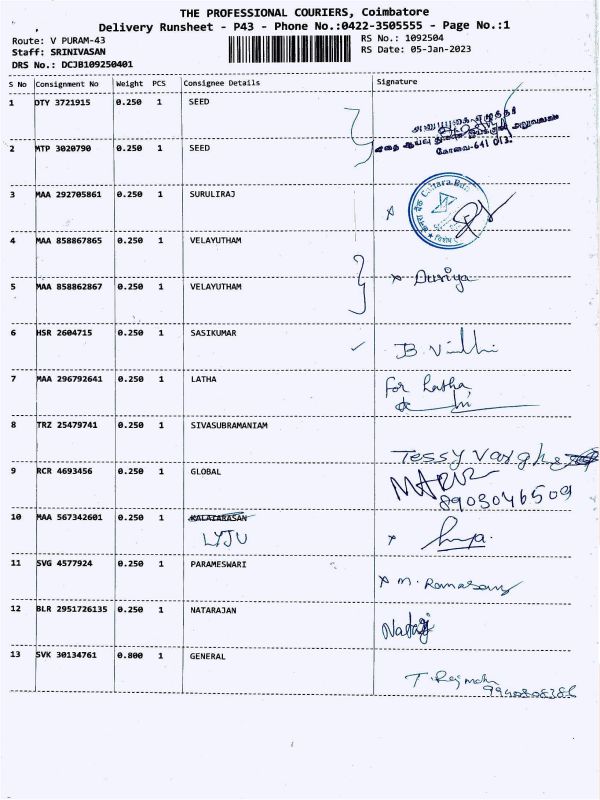 THE PROFESSIONAL COURIERS, Coimbatore
Delivery Runsheet - P43 - Phone No.:0422-3505555 - Page No.:1
Route: V PURAM-43
RS No.: 1092504
Staff: SRINIVASAN
RS Date: 05-Jan-2023
DRS No.: DCJB109250401
S No Consignment No Weight PCS Consignee Details Signature
1 DTY 3721915 0.250 1 SEED
2 MTP 3020790 0.250 1 SEED
கோவை-641 013.
3 MAA 292705861 0.250 1 SURULIRAJ
4 MAA 858867865 0.250 1 VELAYUTHAM
5 MAA 858862867 0.250 1 VELAYUTHAM
6 HSR 2604715 0.250 1 SASIKUMAR
7 MAA 296792641 0.250 1 LATHA
For Latha,
8 TRZ 25479741 0.250 1 SIVASUBRAMANIAM
Tessy Varghese
9 RCR 4693456 0.250 1 GLOBAL
8903046509
10 MAA 567342601 0.250 1 KALAIARASAN
LYJU
11 SVG 4577924 0.250 1 PARAMESWARI
M. Ramasamy
12 BLR 2951726135 0.250 1 NATARAJAN
13 SVK 30134761 0.800 1 GENERAL